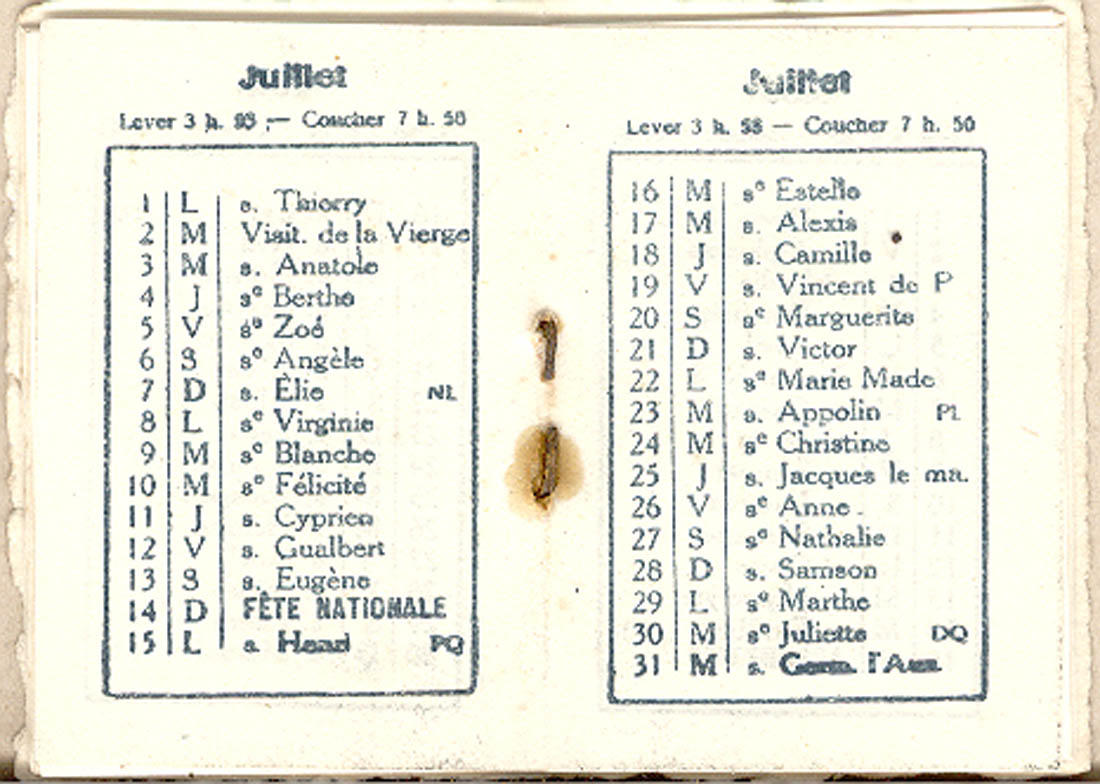 Juillet
Lever 3 h. — Coucher 7 h. 50
1 L s. Thierry
2 M Visit. de la Vierge
3 M s. Anatole
4 J se Berthe
5 V se Zoé
6 S se Angèle
7 D s. Élie NL
8 L se Virginie
9 M se Blanche
10 M se Félicité
11 J s. Cyprien
12 V s. Gualbert
13 S s. Eugène
14 D FÊTE NATIONALE
15 L s. PQ
Juillet
Lever 3 h. 58 — Coucher 7 h. 50
16 M se Estelle
17 M s. Alexis
18 J s. Camille
19 V s. Vincent de P
20 S se Marguerite
21 D s. Victor
22 L se Marie Made
23 M s. Appolin PL
24 M se Christine
25 J s. Jacques le ma.
26 V se Anne.
27 S se Nathalie
28 D s. Samson
29 L se Marthe
30 M se Juliette DQ
31 M s. Germ. l'Aux